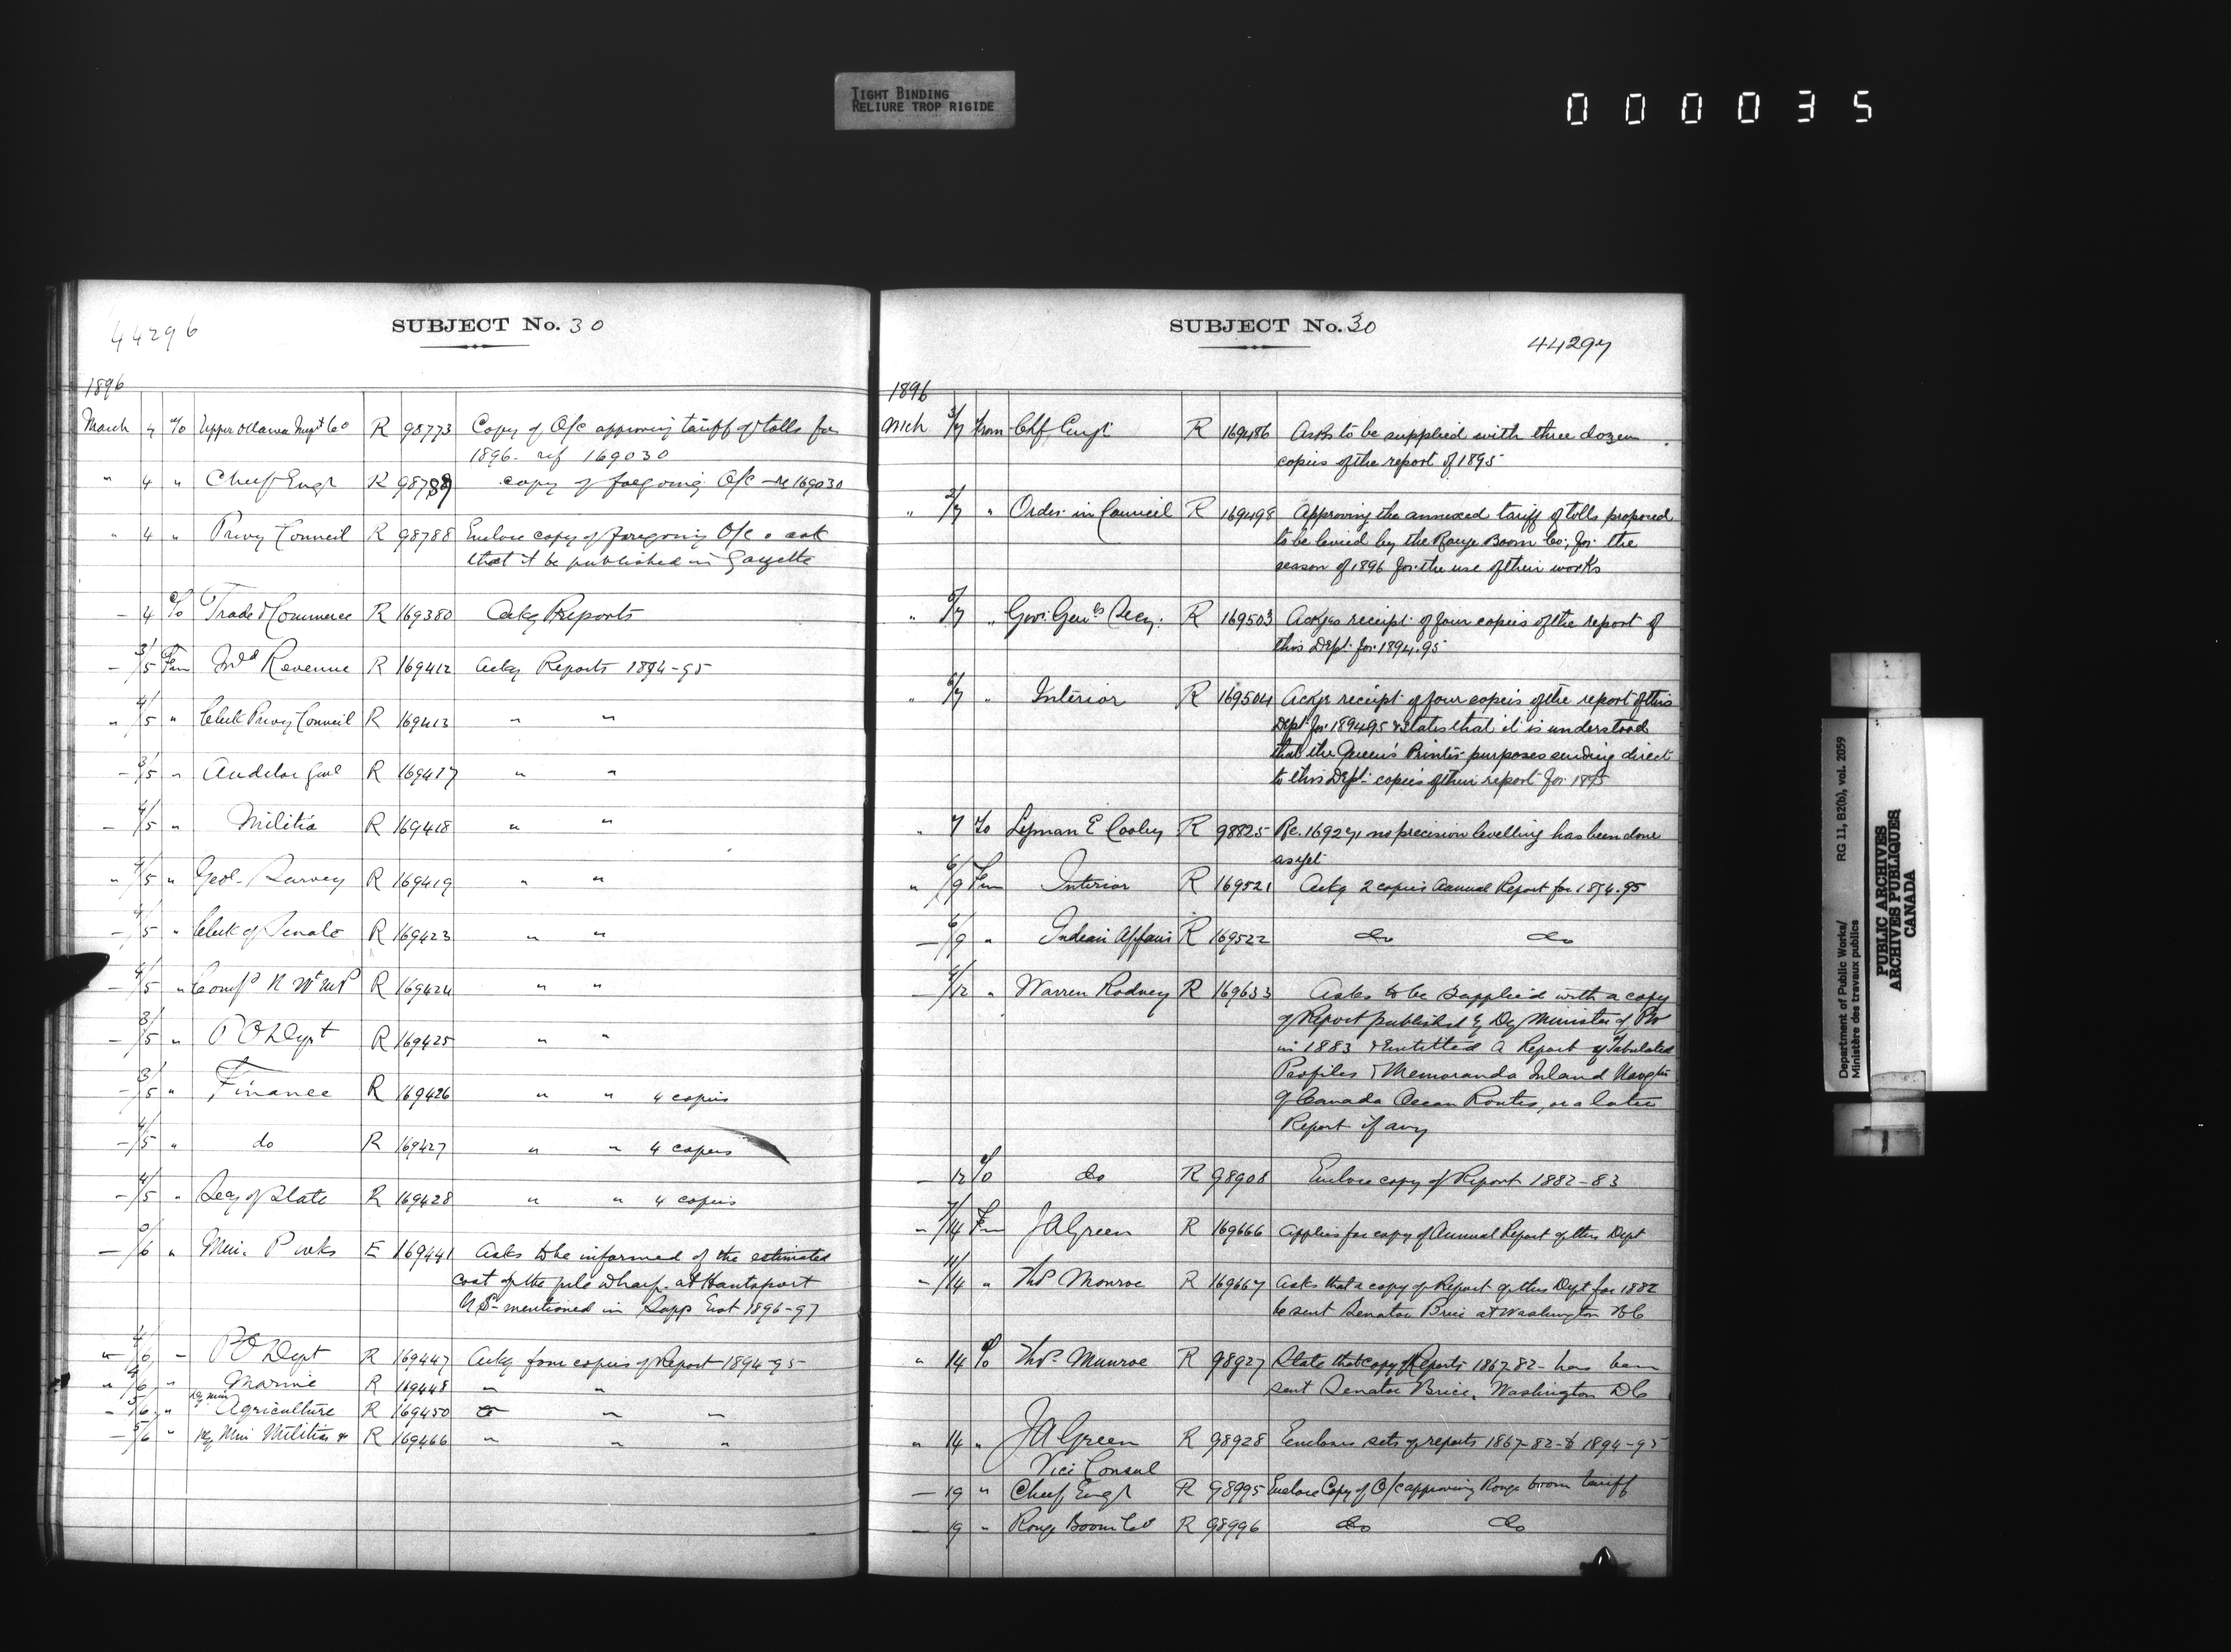 TIGHT BINDING
RELIURE TROP RIGIDE
000035
44296
SUBJECT No. 30
1896
March 4 To Upper Ottawa Impt Co R 98773 Copy of O/c approving tariff of tolls for
1896. ref 169030
" 4 " Chief Engr R 98789 copy of foregoing O/c - re 169030
" 4 " Privy Council R 98788 Enclose copy of foregoing O/c & ask
that it be published in Gazette
- 4 Trade & Commerce R 169380 Ackg Reports
- 3/5 Fm Ind Revenue R 169412 Ackg Reports 1894-95
" 4/5 " Clerk Privy Council R 169413 " "
- 3/5 " Auditor Genl R 169417 " "
- 4/5 " Militia R 169418 " "
" 4/5 " Geol. Survey R 169419 " "
- 4/5 " Clerk of Senate R 169423 " "
- 4/5 " Comr N Wt MP R 169424 " "
- 3/5 " P O Dept R 169425 " "
- 3/5 " Finance R 169426 " " 4 copies
- 4/5 " do R 169427 " " 4 copies
- 4/5 " Secy of State R 169428 " " 4 copies
- /6 " Min. P wks E 169441 Asks to be informed of the estimated
cost of the pile wharf at Hantsport
N S - mentioned in Supp Est 1896-97
" 4/6 - P O Dept R 169447 Ackg four copies of Report 1894-95-
" 4/6 " Marine R 169448 " "
- 5/6 " Dy Min Agriculture R 169450 " "
- 5/6 " Dy Min Militia & R 169466 " " "
SUBJECT No. 30
44297
1896
Mch 3/7 from Chf. Engr R 169486 Asks to be supplied with three dozen
copies of the report of 1895
" 2/7 " Order in Council R 169498 Approving the annexed tariff of tolls proposed
to be levied by the Rouge Boom Co; for the
season of 1896 for the use of their works
" 5/7 " Gov. Genls Secy. R 169503 Ackgs receipt of four copies of the report of
this Dept. for 1894.95
" 5/7 " Interior R 169504 Ackgs receipt of four copies of the report of this
Dept. for 1894.95 & states that it is understood
that the Queen's Printer purposes sending direct
to this Dept. copies of their report for 1895
" 7 To Lyman E Cooley R 98825 Re. 16927, no precision levelling has been done
as yet
" 6/9 Fm Interior R 169521 Ackg 2 copies Annual Report for 1894.95
- 6/9 " Indian Affairs R 169522 do do
- /12 " Warren Rodney R 169633 Asks to be supplied with a copy
of Report published by Dy Minister of PW
in 1883 & Entitled A Report of Tabulated
Profiles & Memoranda Inland Navgtn
of Canada Ocean Routes, or a later
Report if any
- 12 To do R 98908 Enclose copy of Report 1882-83
- 7/14 Fm J A Green R 169666 applies for copy of Annual Report of this Dept
- 11/14 " Ths Monroe R 169667 Asks that a copy of Report of this Dept for 1882
be sent Senator Brice at Washington D C
" 14 To Ths. Munroe R 98927 State that copy of Reports 1867-82- has been
sent Senator Brice, Washington D C
" 14 " J A Green R 98928 Encloses sets of reports 1867-82-& 1894-95
Vice Consul
- 19 " Chief Engr R 98995 Enclose Copy of O/c approving Rouge boom tariff
- 19 " Rouge Boom Co R 98996 do do
Department of Public Works/
Ministère des travaux publics
RG 11, B2(b), vol. 2059
PUBLIC ARCHIVES
ARCHIVES PUBLIQUES
CANADA